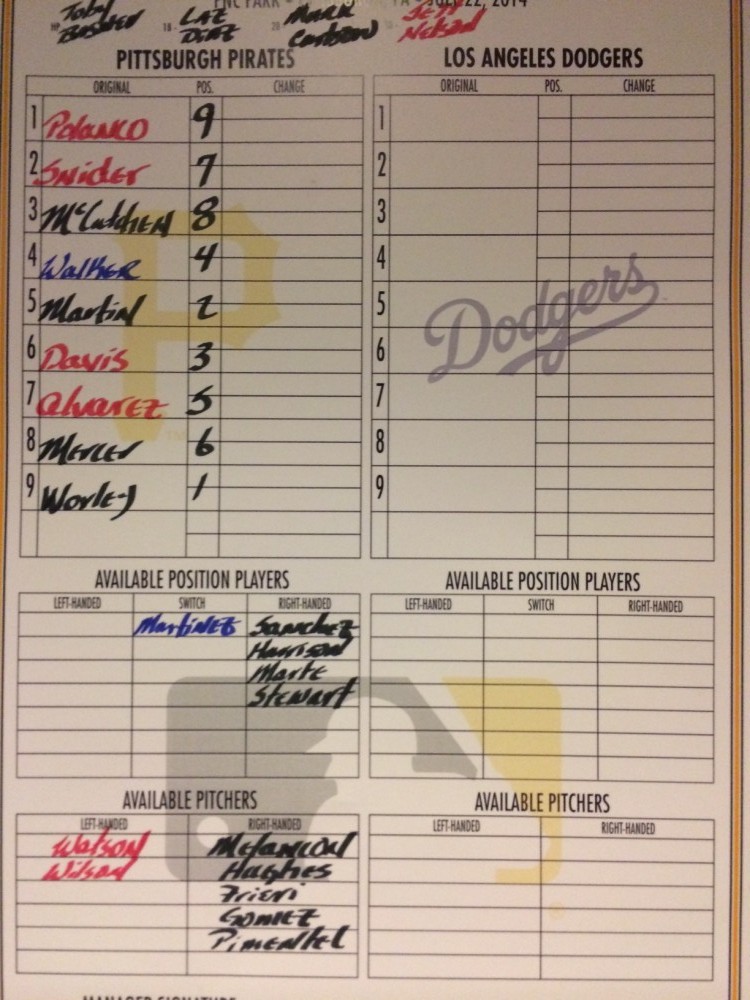 Toby LAZ Mark Jeff
PNC PARK JULY 22, 2014
HP 1B 2B
Basner DIAZ Carlson Nelson
PITTSBURGH PIRATES
ORIGINAL POS. CHANGE
1 Polanco 9
2 Snider 7
3 McCutchen 8
4 Walker 4
5 Martin 2
6 Davis 3
7 Alvarez 5
8 Mercer 6
9 Worley 1
AVAILABLE POSITION PLAYERS
LEFT-HANDED SWITCH RIGHT-HANDED
Martinez Sanchez
Harrison
Marte
Stewart
AVAILABLE PITCHERS
LEFT-HANDED RIGHT-HANDED
Watson Melancon
Wilson Hughes
Frieri
Gomez
Pimentel
LOS ANGELES DODGERS
ORIGINAL POS. CHANGE
1
2
3
4
5
6
7
8
9
Dodgers
AVAILABLE POSITION PLAYERS
LEFT-HANDED SWITCH RIGHT-HANDED
AVAILABLE PITCHERS
LEFT-HANDED RIGHT-HANDED
P
TM
MANAGER SIGNATURE